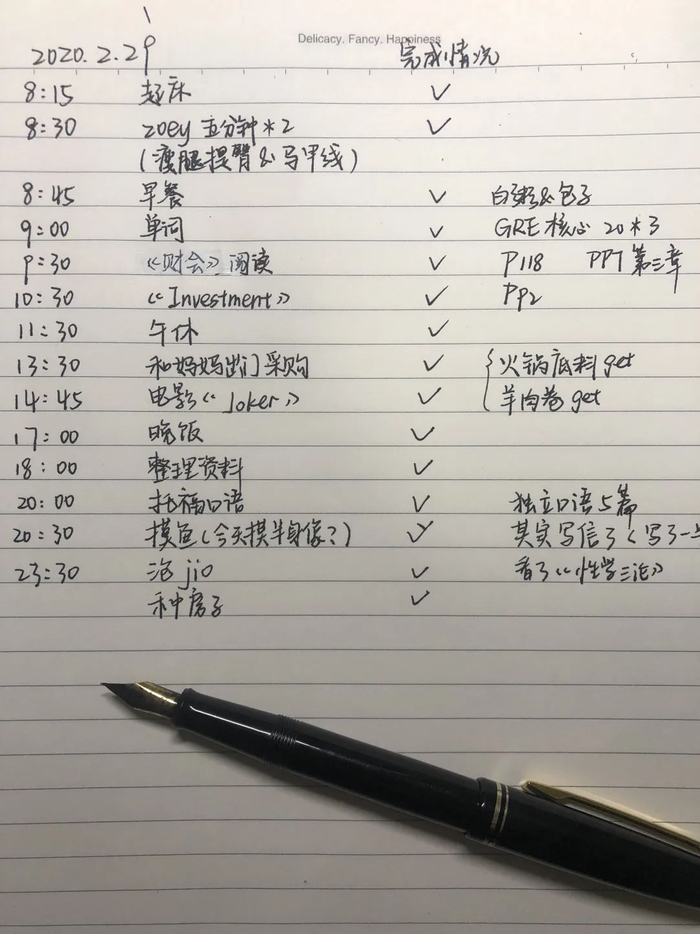 Delicacy. Fancy. Happiness
2020.2.29 完成情况
8:15 起床 ✓
8:30 zoey 五分钟*2 ✓
(瘦腿提臀&马甲线)
8:45 早餐 ✓ 白粥&包子
9:00 单词 ✓ GRE核心 20*3
9:30 《财会》阅读 ✓ P118 PPT第三章
10:30 《Investment》 ✓ PP2
11:30 午休 ✓
13:30 和妈妈出门采购 ✓ 火锅底料get
14:45 电影《Joker》 ✓ 羊肉卷get
17:00 晚饭 ✓
18:00 整理资料 ✓
20:00 托福口语 ✓ 独立口语5篇
20:30 摸鱼(今天摸半身像?) ✓ 其实写信了(写了一
23:30 泡jio ✓ 看了《性学三论》
种房子 ✓